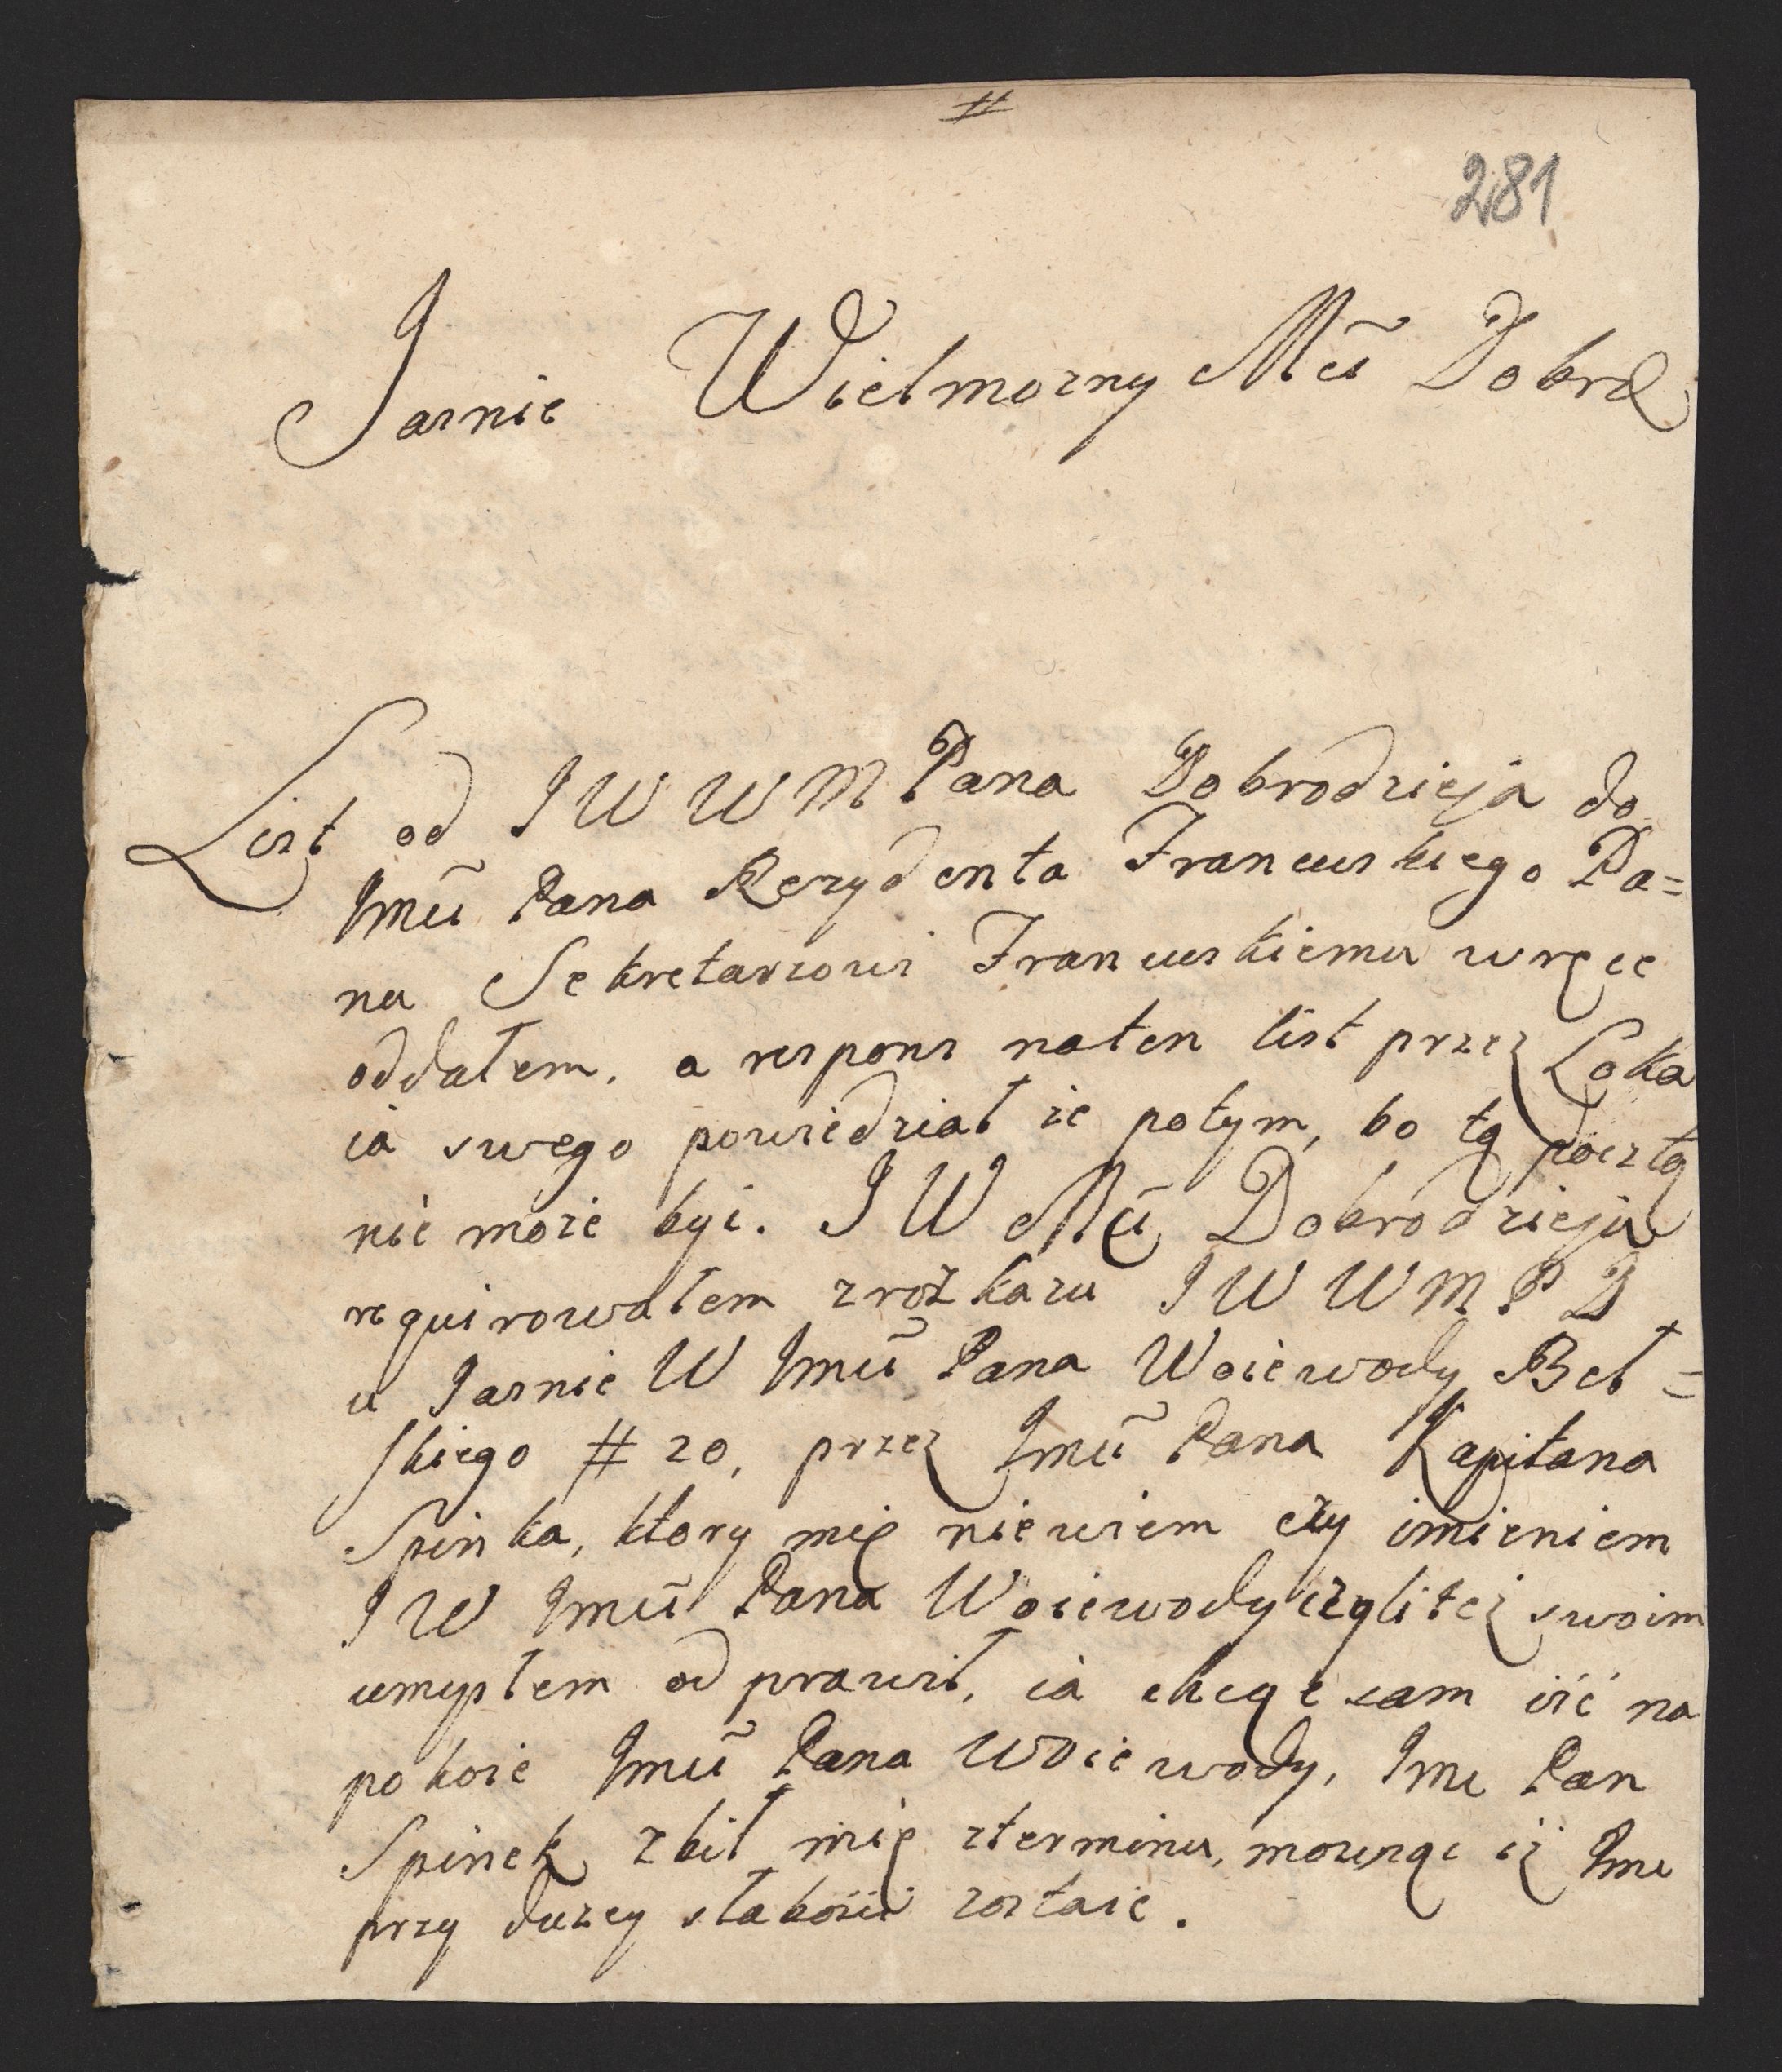 #
281
Jasnie Wielmozny Mći Dobrd
List od J W W M Pana Dobrodzieja do
Jmći Pana Rezydenta Francuskiego Pa=
nu Sekretarzowi Francuskiemu w ręce
oddałem. a respons naten list przez Loka
ia swego powiedział ze potym, bo tą pocztą
nie może być. J W Mći Dobrodzieju
requirowałem z rozkazu J W W M P D
u Jasnie W Jmći Pana Woiewody Bel=
skiego # 20, przez Jmći Pana Kapitana
Spinka, ktory mię niewiem czy imieniem
J W Jmći Pana Woiewody czyli tez swoim
umysłem odprawił, ia chcąc sam iść na
pokoie Jmći Pana Woiewody, Jmc Pan
Spinek zbił mię zterminu, mowiąc iz Jmc
przy duzey słabości zostaie.